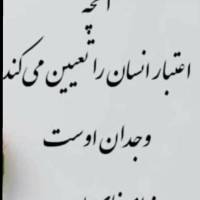 آنچه
اعتبار انسان را تعیین می کند
وجدان اوست